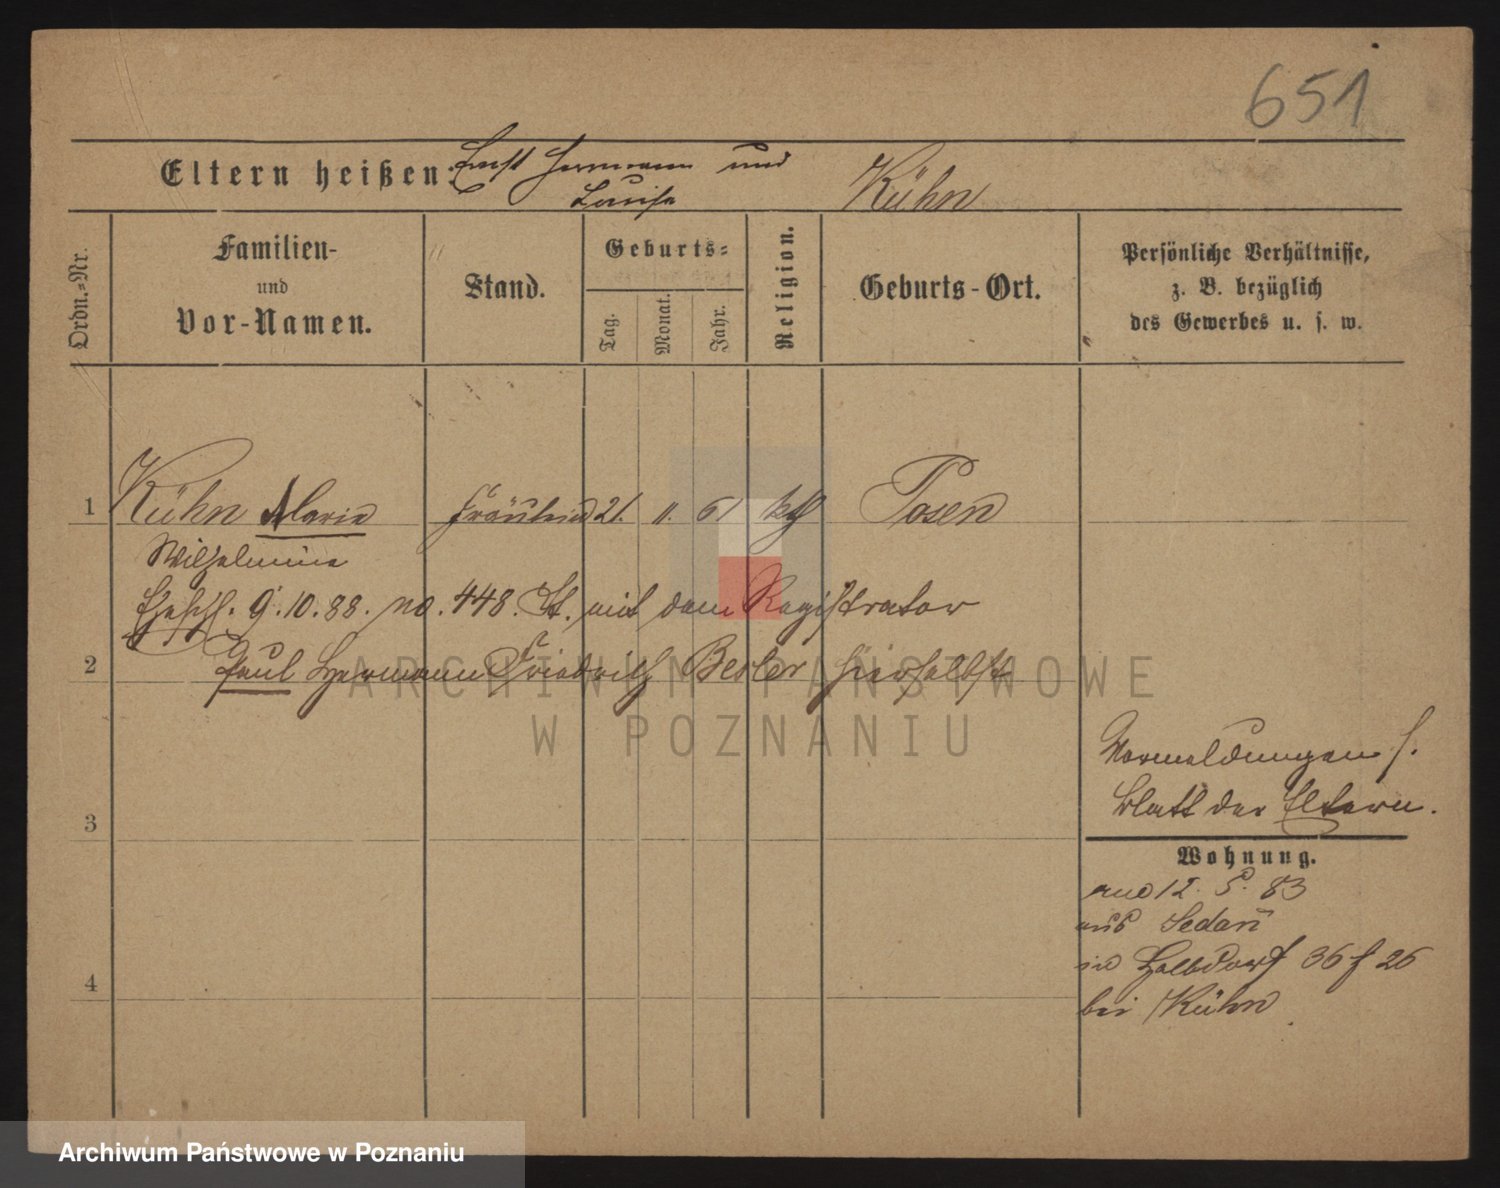 651
Eltern heißen: Ernst Hermann und
Louise Kühn
Ordn.=Nr.
Familien-
und
Vor-Namen.
Stand.
Geburts=
Tag.
Monat.
Jahr.
Religion.
Geburts-Ort.
Persönliche Verhältnisse,
z. B. bezüglich
des Gewerbes u. s. w.
1 Kühn Marie Fräulein 21. 11. 61 Posen
Wilhelmine
Ehesch. 9.10.88. no. 448. St. mit dem Registrator
2 Paul Hermann Friedrich Besler hierselbst
Vermeldungen s.
Blatt der Eltern.
3
Wohnung.
12. 5. 83
aus Sedan
4 in Halbdorf 36 f 26
bei Kühn
ARCHIWUM PAŃSTWOWE
W POZNANIU
Archiwum Państwowe w Poznaniu